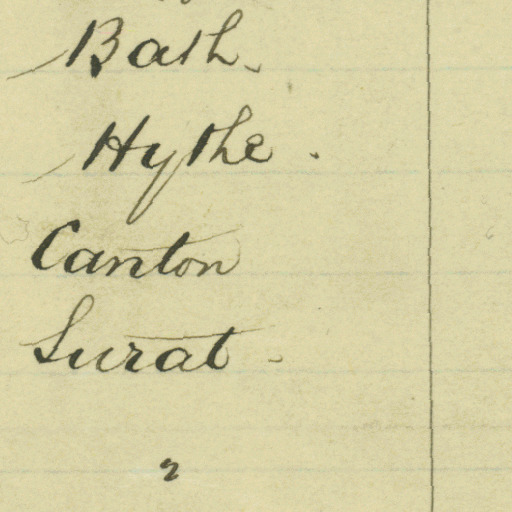 Bath.
Hythe.
Canton
Surat -
2